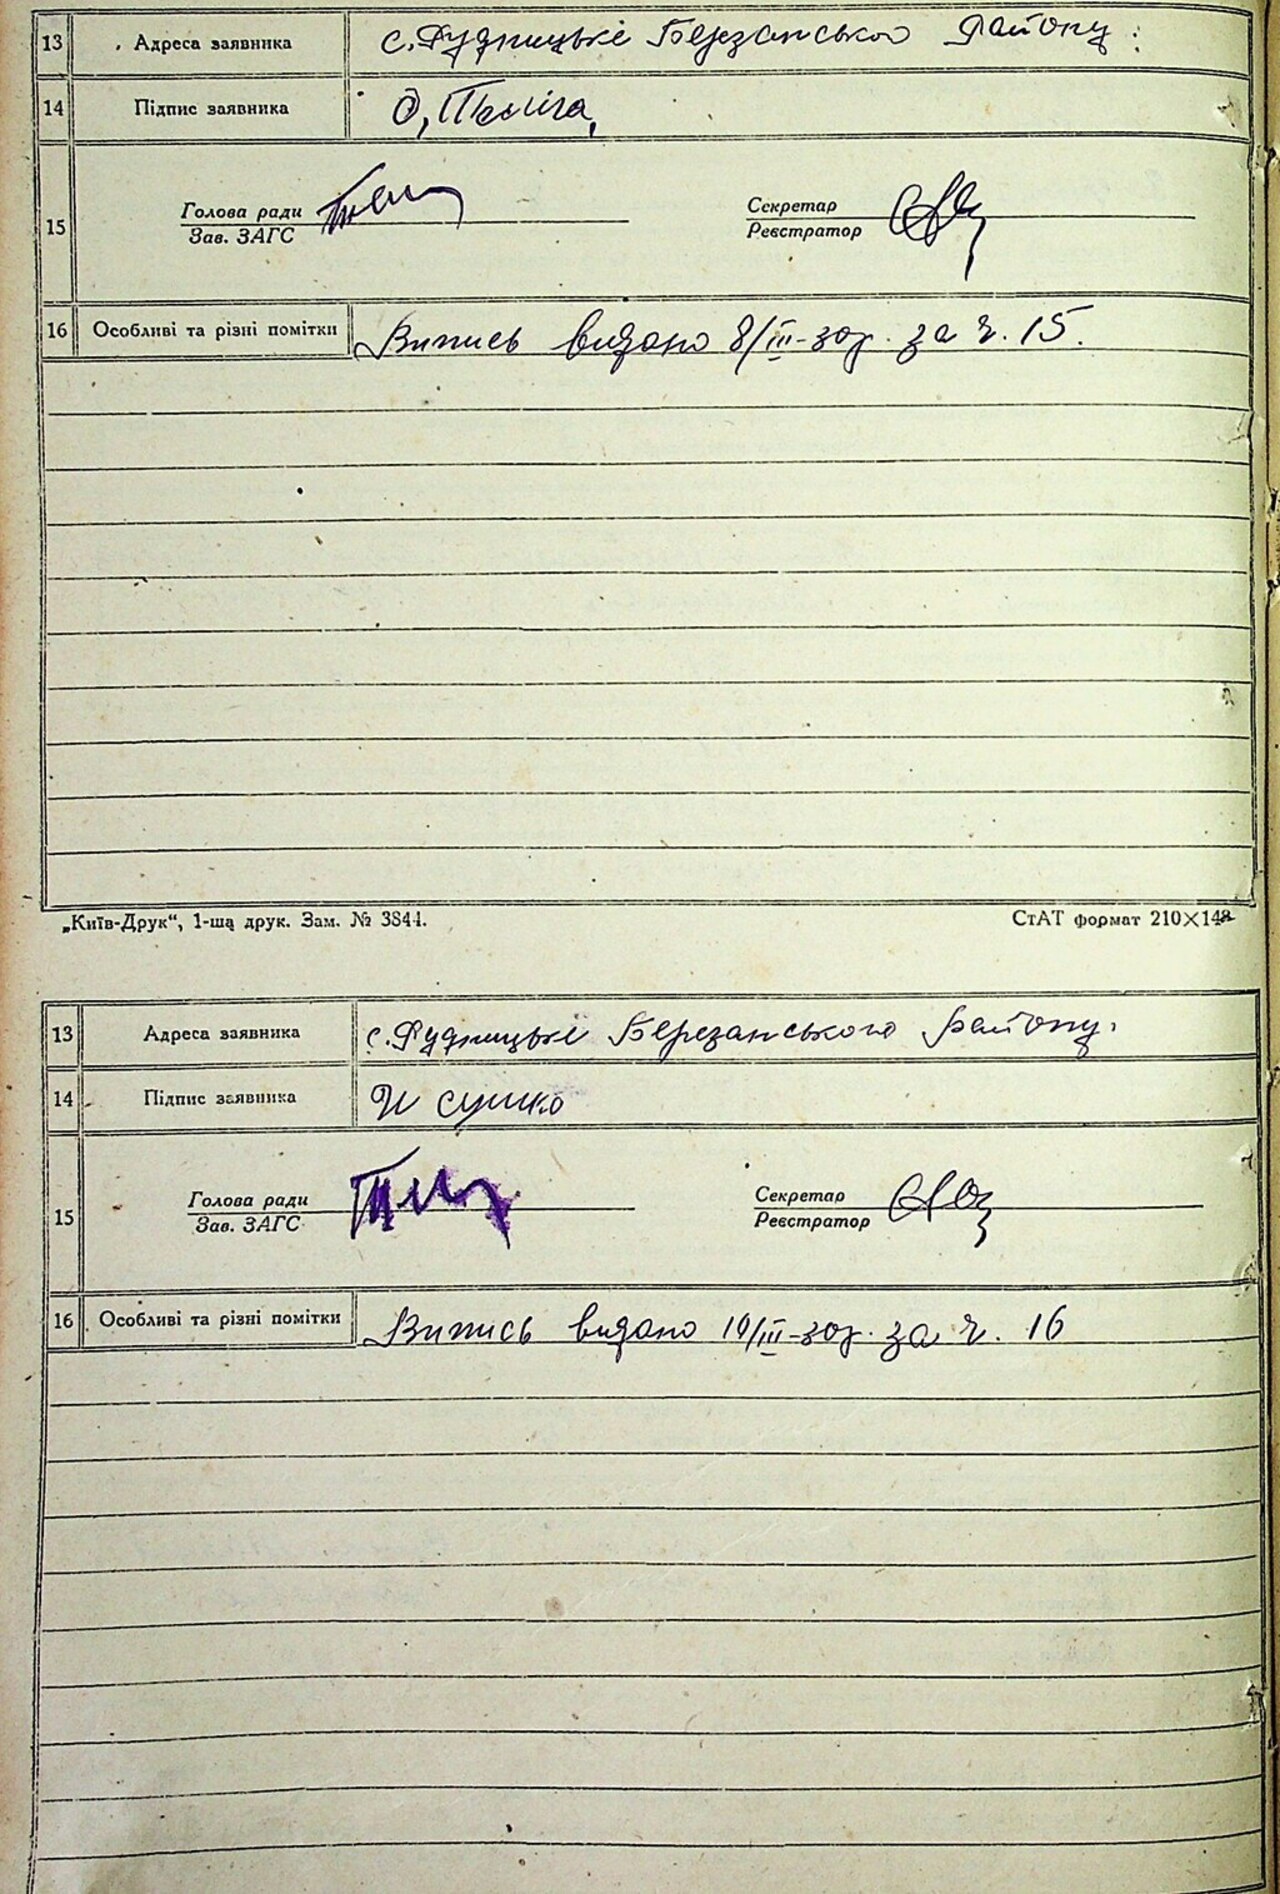 13 Адреса заявника с. Рудницькі Березанського району
14 Підпис заявника О, Теліга,
15 Голова ради Секретар
Зав. ЗАГС Реєстратор
16 Особливі та різні помітки Випись видано 8/III-30р. за ч. 15.
„Київ-Друк“, 1-ша друк. Зам. № 3844. СтАТ формат 210×148
13 Адреса заявника с. Рудницькі Березанського району.
14 Підпис заявника И сушко
15 Голова ради Секретар
Зав. ЗАГС Реєстратор
16 Особливі та різні помітки Випись видано 10/III-30р. за ч. 16